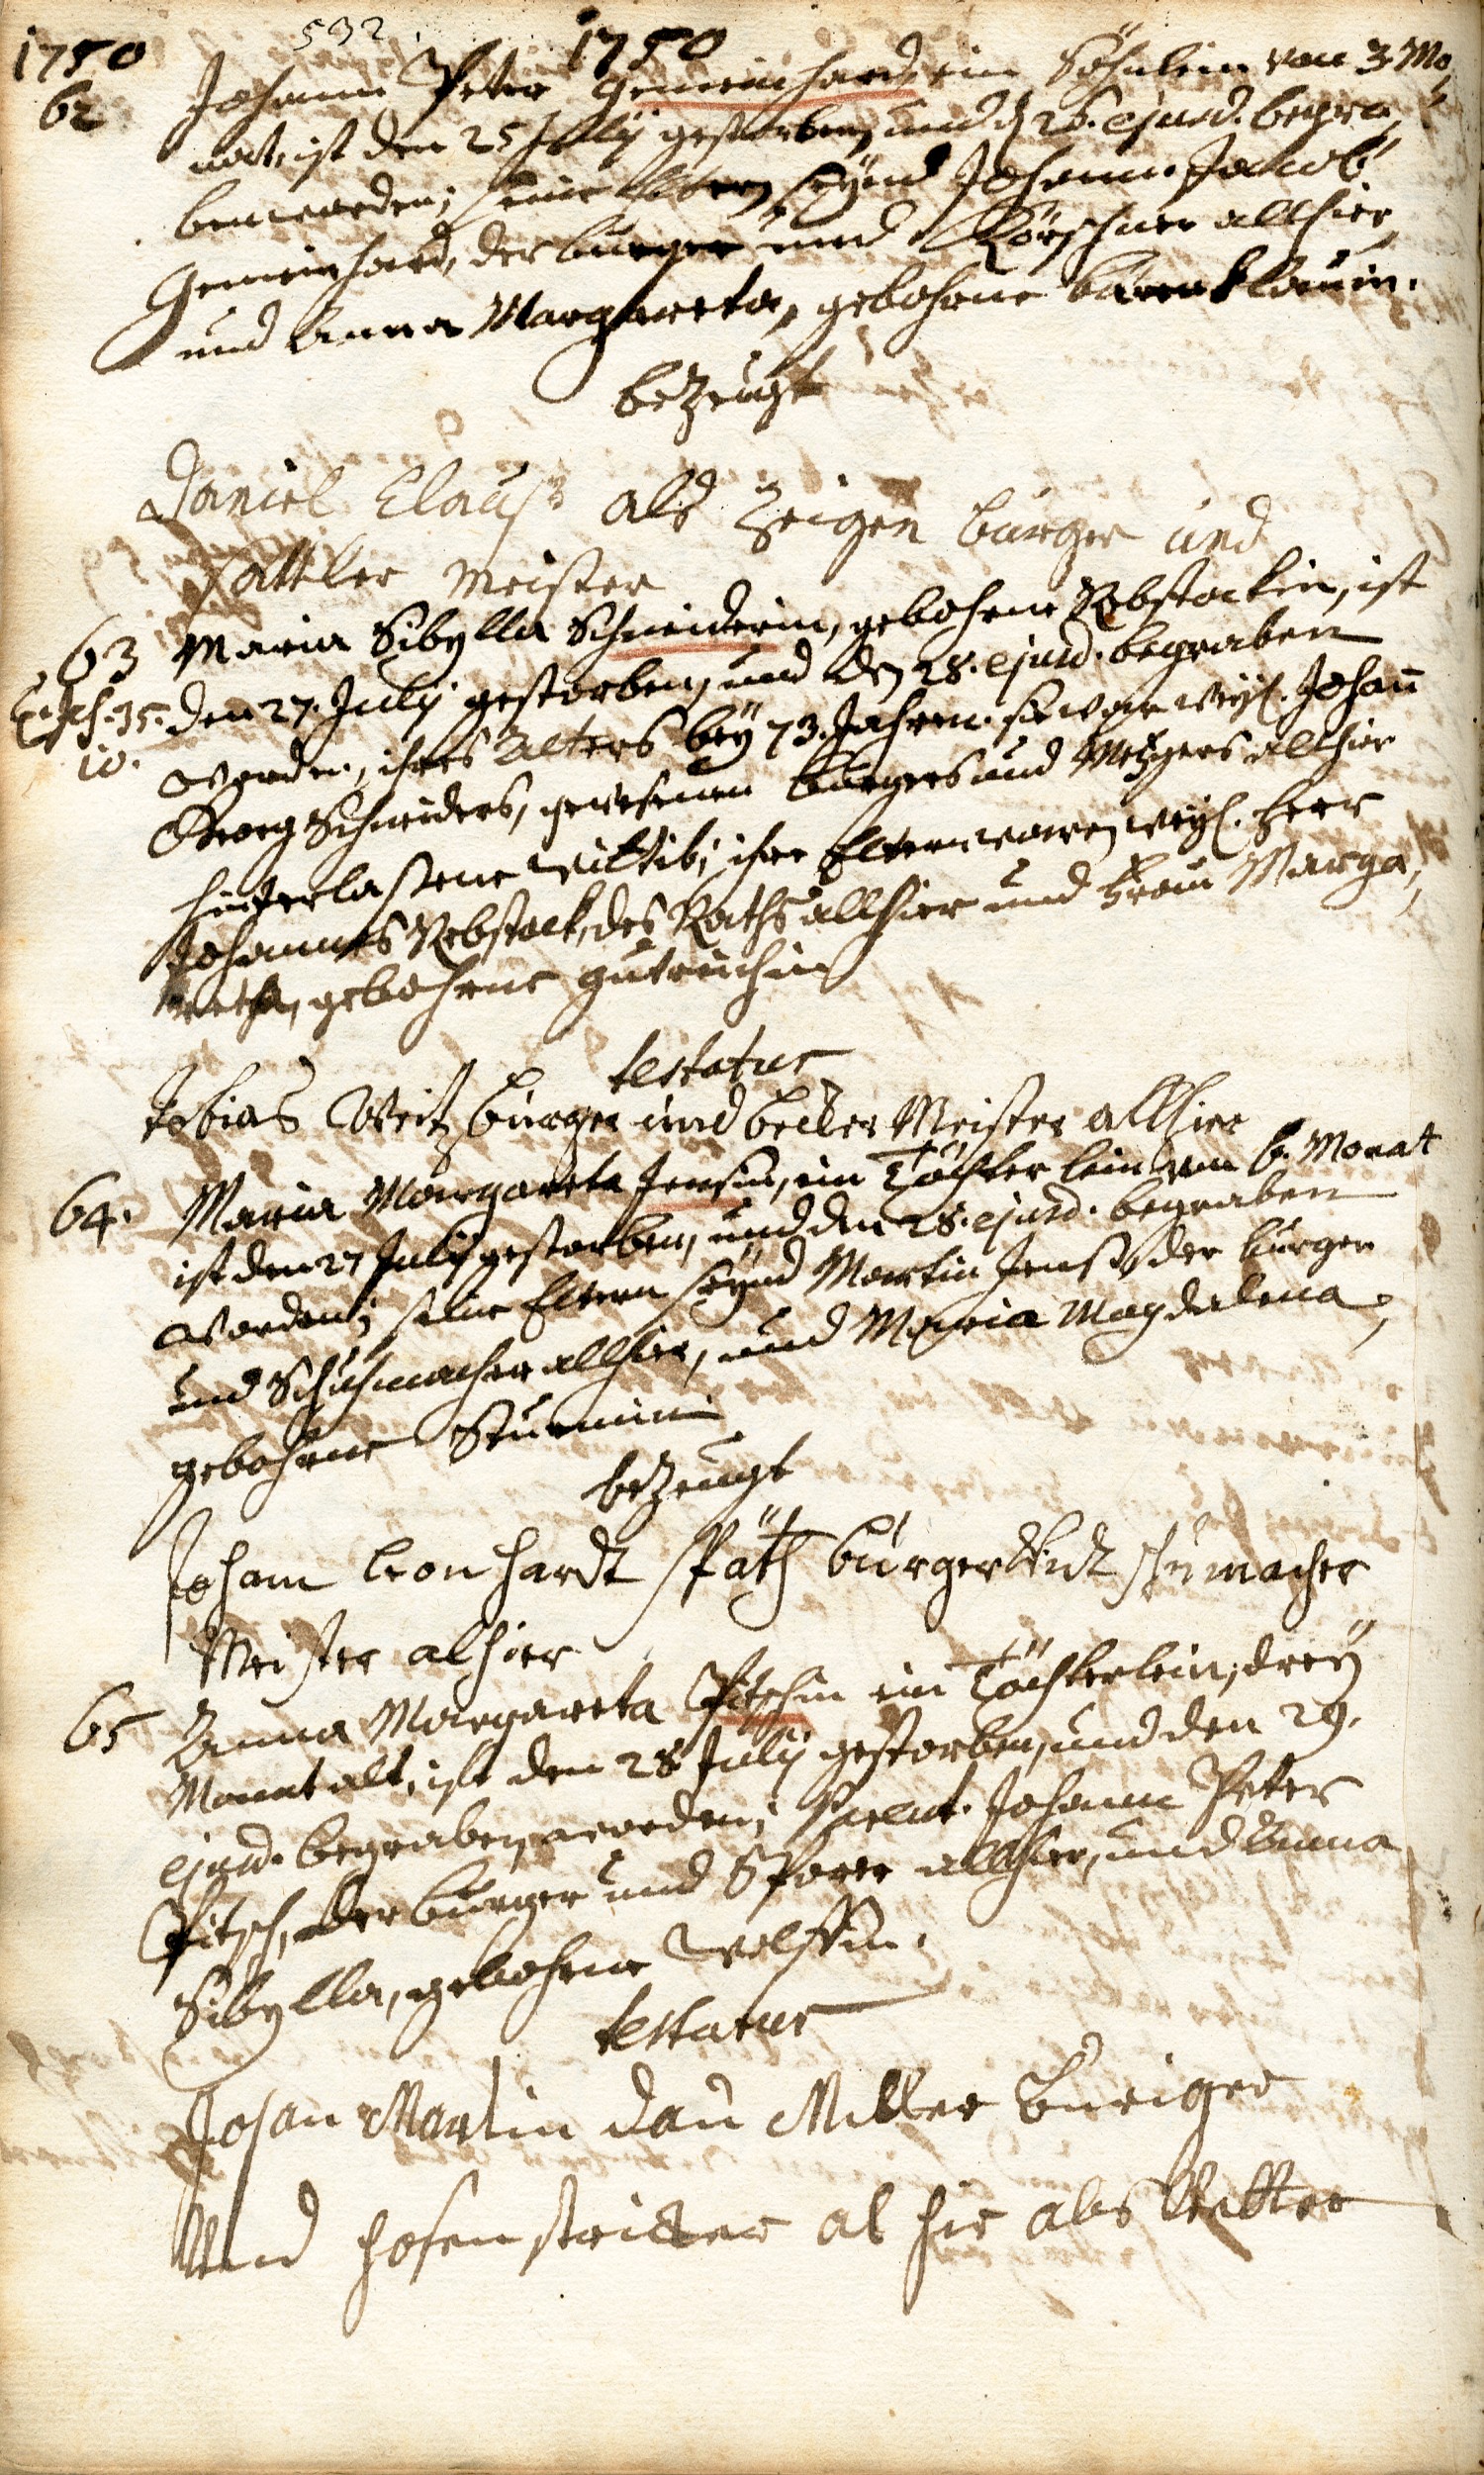 1750 532. 1750
62 Johann Peter Gemeinhard, ein Söhnlein von 3 Mo,
nat, ist den 25 July gestorben, und d. 26. ejusd. begra,
ben worden; seine Eltern seynd Johann Jacob
Gemeinhard, der burger und Kürschner allhier,
und Anna Margareta, gebohrne bärenklauin.
bezeugt
Daniel Clauß als Zeigen burger und
sattler meister
63 Maria Sibylla Schneiderin, gebohrne Rebstockin, ist
den 27. July gestorben, und den 28. ejusd. begraben
10.
worden, ihres Alters bey 73. Jahren. sie war weyl. Johañ
Georg Schneiders, gewesenen burgers und Metzgers allhier
hinterlaßene wittib; ihre Eltern waren weyl. Herr
Johannes Rebstock, des Raths allhier und Frau Marga,
retha, gebohrne
testatur
Tobias Veitz burger und becker Meister allhier
64. Maria Margareta Jensin, ein Töchterlein von 6. Monat
ist den 27 July gestorben, und den 28. ejusd. begraben
worden; seine Eltern seynd Martin Jenß, der burger
und Schuhmacher allhier, und Maria Magdalena,
gebohrne Sturmin
bezeugt
Johann leonhardt späth burger Vndt schumacher
Meister alhier
65 Anna Margareta Pitschin ein Töchterlein, drey
Monat alt, ist den 28 July gestorben, und den 29.
ejusd. begraben worden; Parent. Johann Peter
Pitsch, der burger und Sporer allhier, und Anna
Sibylla, gebohrne Wolffin.
testatur
Johan Martin dau Miller buriger
Vnd hosen stricker al hie als Vetter